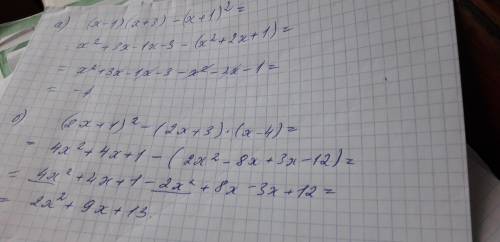 а) (x-1)(x+3)-(x+1)²=
x²+3x-1x-3-(x²+2x+1)=
=x²+3x-1x-3-x²-2x-1=
= -4
б) (2x+1)²-(2x+3)·(x-4)=
= 4x²+4x+1-(2x²-8x+3x-12)=
= 4x²+4x+1-2x²+8x-3x+12=
= 2x²+9x+13.